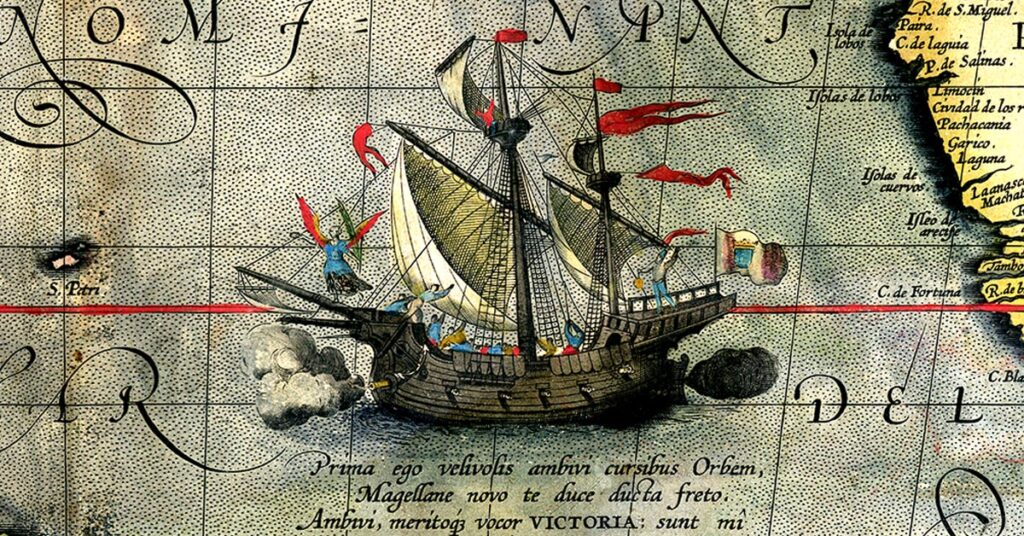 NOMI= NANT
R. de S. Miguel.
Paira.
Isola de
lobos
C. de laguia
P. de Salinas.
Limocin
Isolas de lobos
Cividad de los r
Pachacama
Garico.
Laguna
Isolas de
cuervos
Isleo de
arecife
Tambo
S. Petri
C. de Fortuna
R. de b
C. Bla
AR DEL
Prima ego velivolis ambivi cursibus Orbem,
Magellane novo te duce ducta freto.
Ambivi, meritoq3 vocor VICTORIA: sunt mî